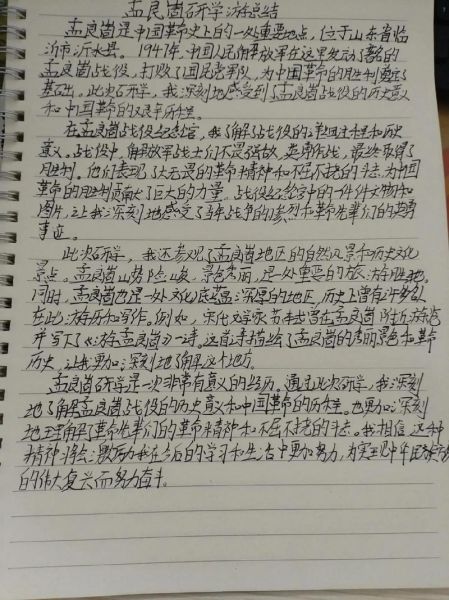 孟良崮研学游总结
孟良崮是中国革命史上的一处重要地点，位于山东省临
沂市沂水县。1947年，中国人民解放军在这里发动了著名的
孟良崮战役，打败了国民党军队，为中国革命的胜利奠定了
基础。此次研学，我深刻地感受到了孟良崮战役的历史意义
和中国革命的艰辛历程。
在孟良崮战役纪念馆，我了解了战役的详细过程和历史
意义。战役中，解放军战士们不畏强敌，英勇作战，最终取得了
胜利。他们表现了大无畏的革命精神和不屈不挠的斗志，为中国
革命的胜利贡献了巨大的力量。战役纪念馆中的一件件文物和
图片，让我深刻地感受了当年战争的惨烈和革命先辈们的英勇
事迹。
此次研学，我还参观了孟良崮地区的自然风景和历史文化
景点。孟良崮山势险峻，景色秀丽，是一处重要的旅游胜地。
同时，孟良崮也是一处文化底蕴深厚的地区，历史上曾有许多名人
在此游历和写作。例如，宋代文学家苏轼曾在孟良崮附近游览
并写下了《游孟良崮》一诗。这首诗描绘了孟良崮的秀丽景色和革命
历史，让我更加深刻地了解这个地方。
孟良崮研学是一次非常有意义的经历，通过此次研学，我深刻
地了解孟良崮战役的历史意义和中国革命的历程。也更加深刻
地理解了革命先辈们的革命精神和不屈不挠的斗志。我相信，这种
精神将会激励我在今后的学习和生活中更加努力，为实现中华民族
的伟大复兴而努力奋斗。